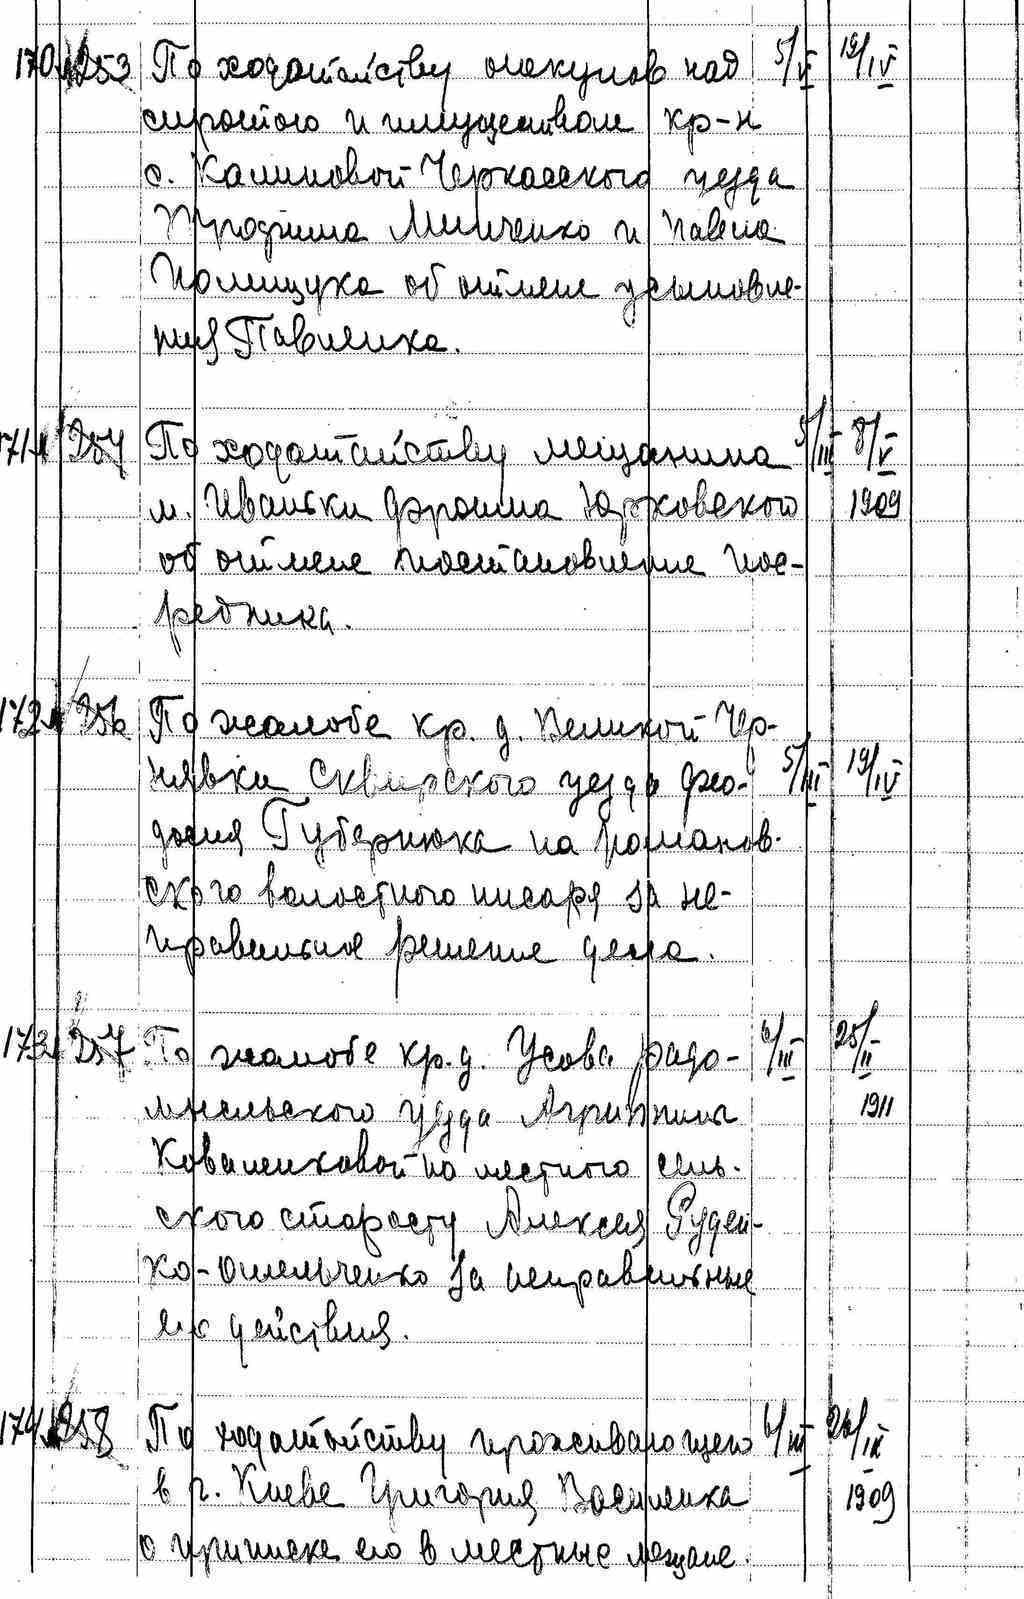 170 253 По ходатайству опекунов над 5/V 19/IV
сиротою и имуществом кр-н
с. Калиновой Черкасского уезда
Трофима Минченко и Павела
Полищука об отмене усыновле-
ния Павленка.
171 254 По ходатайству мещанина 5/III 8/V
м. Иваньки Юрковского 1909
об отмене постановление пос-
редника.
172 256 По жалобе кр. д. Великой Чер-
нявки Сквирского уезда Фео- 5/III 19/IV
досия Губернюка на Романов-
ского волостного писаря за не-
правильное решение дела.
173 257 По жалобе кр. д. Усова радо- 6/III 25/II
мысльского уезда Агриппины 1911
Коваленковой на местного сель-
ского старосту Алексея Руден-
ко-Омельченко за неправильные
его действия.
174 258 По ходатайству проживающего 6/III 26/IX
в г. Киеве Григория Василенка 1909
о приписке его в местные мещане.